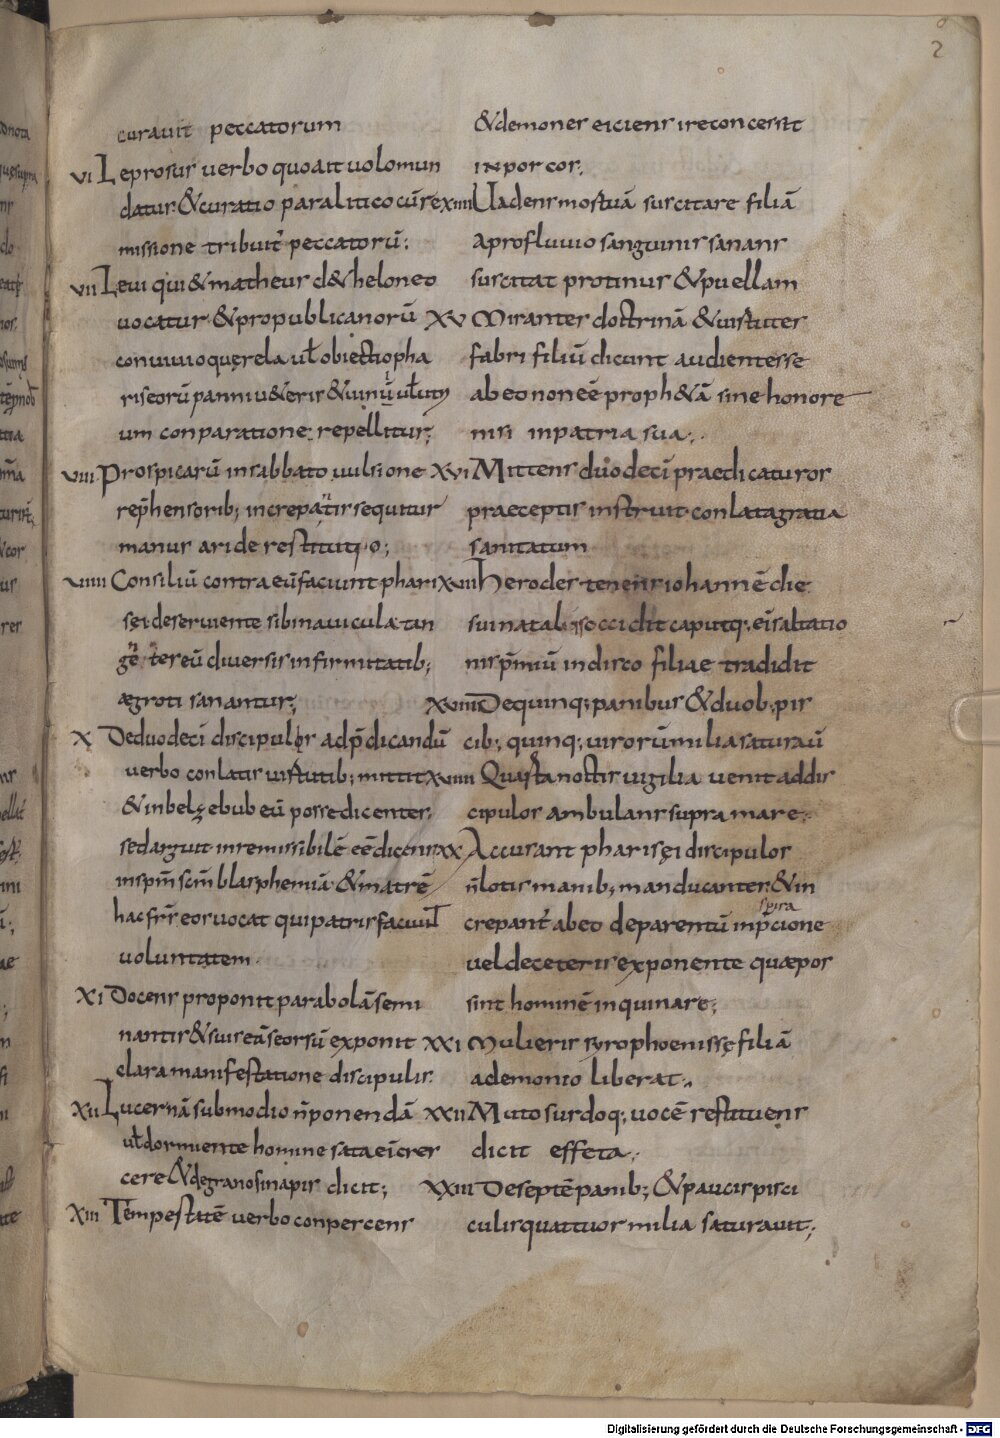 2
curauit peccatorum
VI Leprosus uerbo quo ait uolo mun
datur & curatio paralitico cū re
missione tribuit peccatorū;
VII Leui qui & matheus de theloneo
uocatur & pro publicanorū
conuiuio querela uł obiectio pha
riseorū panni u&eris & uini
um conparatione repellitur;
VIII Pro spicarū in sabbato uulsione
rep̄hensorib; increpatis sequitur
manus aride restitutio;
VIIII Consiliū contra eū faciunt phari
sęi deseruiente sibi nauicula tan
gētes eū diuersis infirmitatib;
ægroti sanantur;
X De duodecī discipulos ad p̄dicandū
uerbo conlatis uirtutib; mittit
& in belzebub eū posse dicentes
sed arguit inremissibilē eē dicens
in sp̄m sc̄m blasphemiā & matrē
hac fr̄r eos uocat qui patris faciunt
uoluntatem
XI Docens proponit parabolā semi
nantis & suis eā seorsū exponit
clara manifestatione discipulis
XII Lucernā sub modio n̄ ponendā
uł dormiente homine sata cres
cere & de grano sinapis dicit;
XIII Tempestatē uerbo conpercens
& demones eiciens ire concessit
in porcos;
XIIII Uadens mortuā suscitare filiā
a profluuio sanguinis sanans
suscitat protinus & puellam
XV Mirantes doctrinā & uirtutes
fabri filiū dicunt audientes se
ab eo non eē proph&ā sine honore
nisi in patria sua;
XVI Mittens duodecī praedicaturos
praeceptis instruit conlata gratia
sanitatum
XVII Herodes tenens iohannē die
sui natalis occidit caputq; ei saltatio
nis p̄miū in disco filiae tradidit
XVIII De quinq; panibus & duob; pis
cib; quinq; uirorū milia saturau̅
XVIIII Quarta noctis uigilia uenit ad dis
cipulos ambulans supra mare;
XX Accusant pharisęi discipulos
n̄ lotis manib; manducantes & in
spira
crepant ab eo de parentū inp̄cione
uel de ceteris exponente quæ pos
sint hominē inquinare;
XXI Mulieris syrophoenissę filiā
a demonio liberat;
XXII Muto surdoq; uocē restituens
dicit effeta;
XXIII De septē panib; & paucis pisci
culis quattuor milia saturauit;
Digitalisierung gefördert durch die Deutsche Forschungsgemeinschaft - DFG